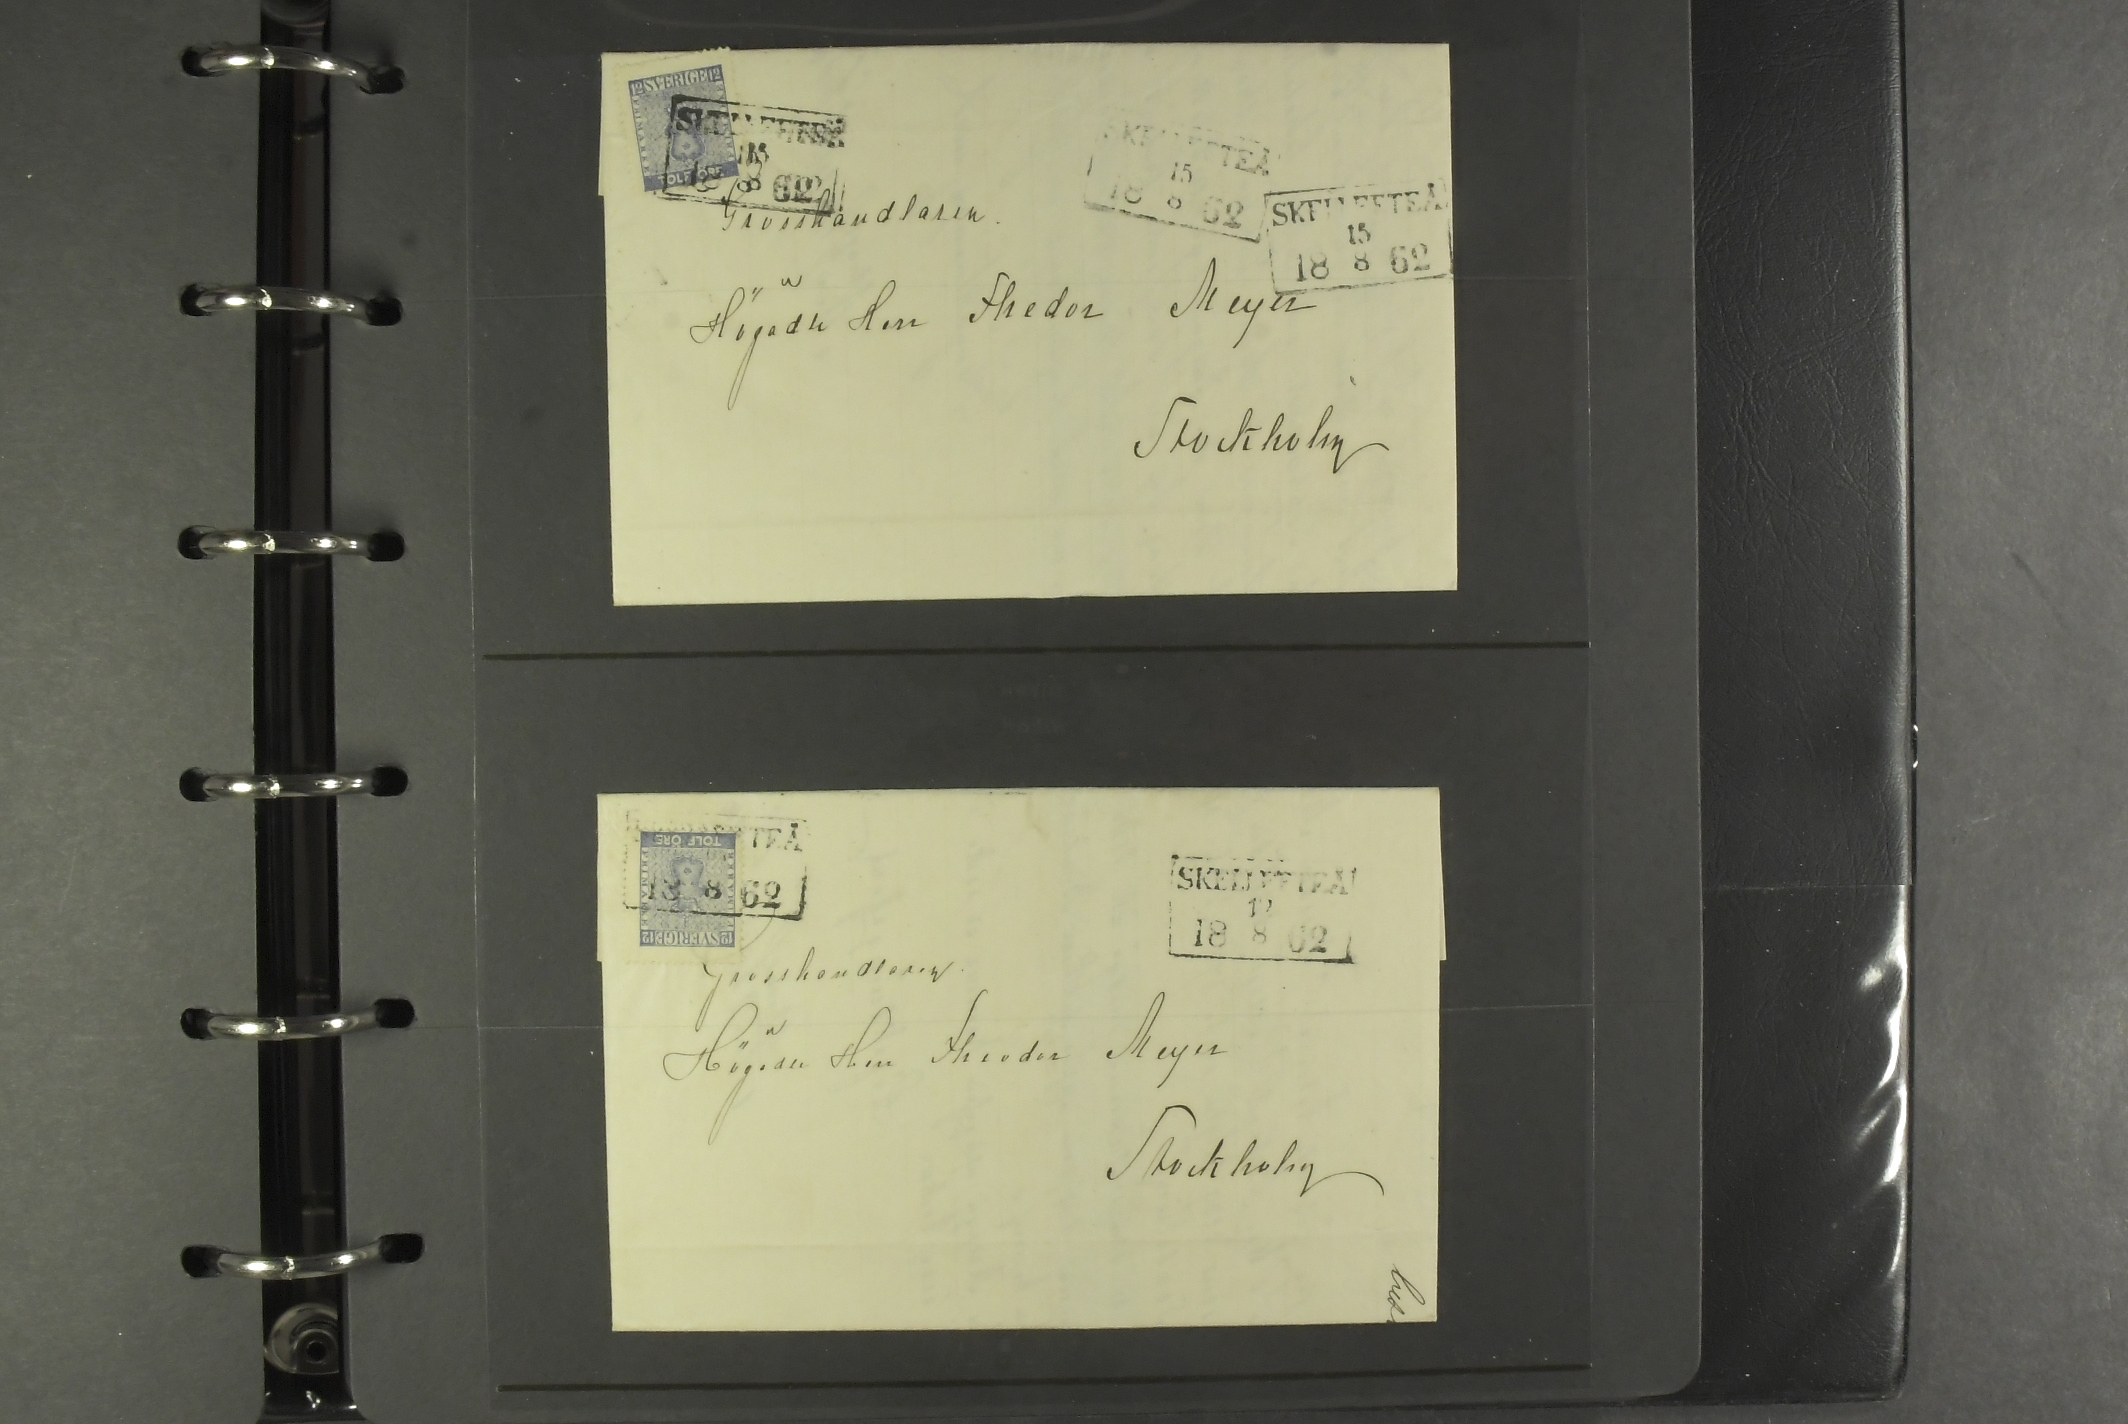 12 SVERIGE 12
TOLF ÖRE
SKELLEFTEÅ
15
18 8 62
SKELLEFTEÅ
15
18 8 62
SKELLEFTEÅ
15
18 8 62
Grosshandlaren.
Högädle Herr Thedor Meyer
Stockholm
TOLF ÖRE
12 SVERIGE 12
TEÅ
18 8 62
SKELLEFTEÅ
12
18 8 62
Grosshandlaren.
Högädle Herr Theodor Meyer
Stockholm